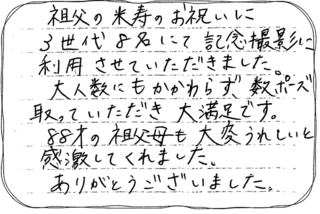 祖父の米寿のお祝いに
3世代8名にて記念撮影に
利用させていただきました。
大人数にもかかわらず、数ポーズ
取っていただき大満足です。
88才の祖父母も大変うれしいと
感激してくれました。
ありがとうございました。